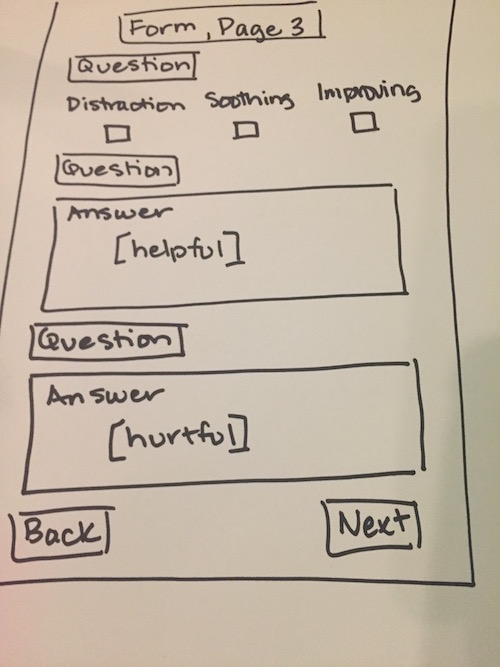 Form, Page 3
Question
Distraction Soothing Improving
Question
Answer
[helpful]
Question
Answer
[hurtful]
Back Next